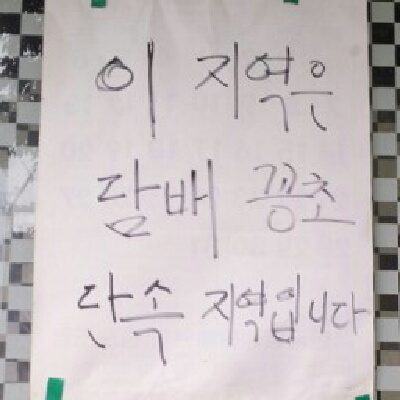 이 지역은
담배 꽁초
단속 지역입니다